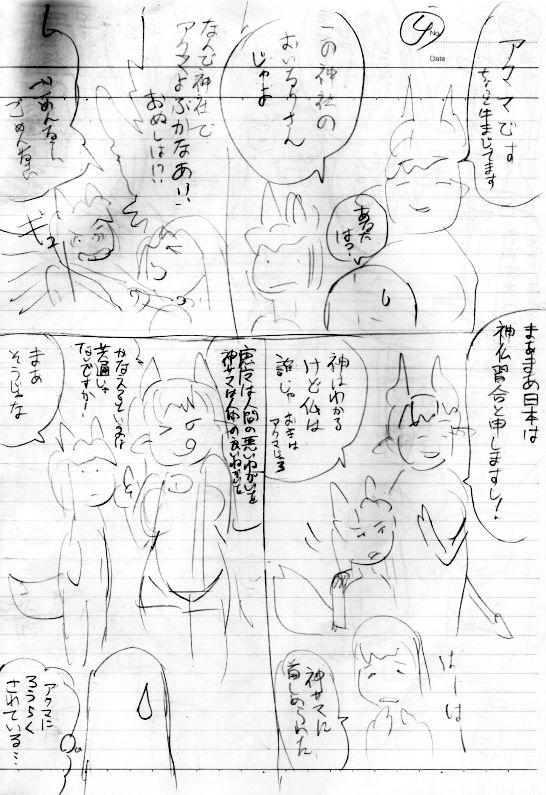 4
No.
Date
アクマです
ちょっと牛まじってます
あなた
は?
この神社の
おいなりさん
じゃよ
なんで神社で
アクマよぶかなあ!!
おぬしは!?
ごめんなさい
ギュ
まあまあ日本は
神仏習合と申しますし!
神はわかる
けど仏は
誰じゃ
おぬしは
アクマじゃろ
はーは
神サマに
首しめられた
悪マは人間の悪いねがいを
神サマは人間の良いねがいを
かなえるっていみは
共通じゃ
ないですか!
まあ
そうじゃな
アクマに
ろうらく
されている…